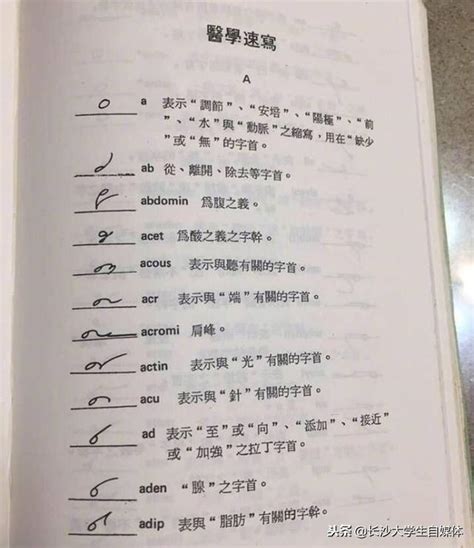 醫學速寫
A
a 表示“調節”、“安培”、“陽極”、“前
”、“水”與“動脈”之縮寫，用在“缺少
”或“無”的字首。
ab 從、離開、除去等字首。
abdomin 爲腹之義。
acet 爲酸之義之字幹。
acous 表示與聽有關的字首。
acr 表示與“端”有關的字首。
acromi 肩峰。
actin 表示與“光”有關的字首。
acu 表示與“針”有關的字首。
ad 表示“至”或“向”、“添加”、“接近”
或“加強”之拉丁字首。
aden “腺”之字首。
adip 表與“脂肪”有關的字幹。
头条 @长沙大学生自媒体